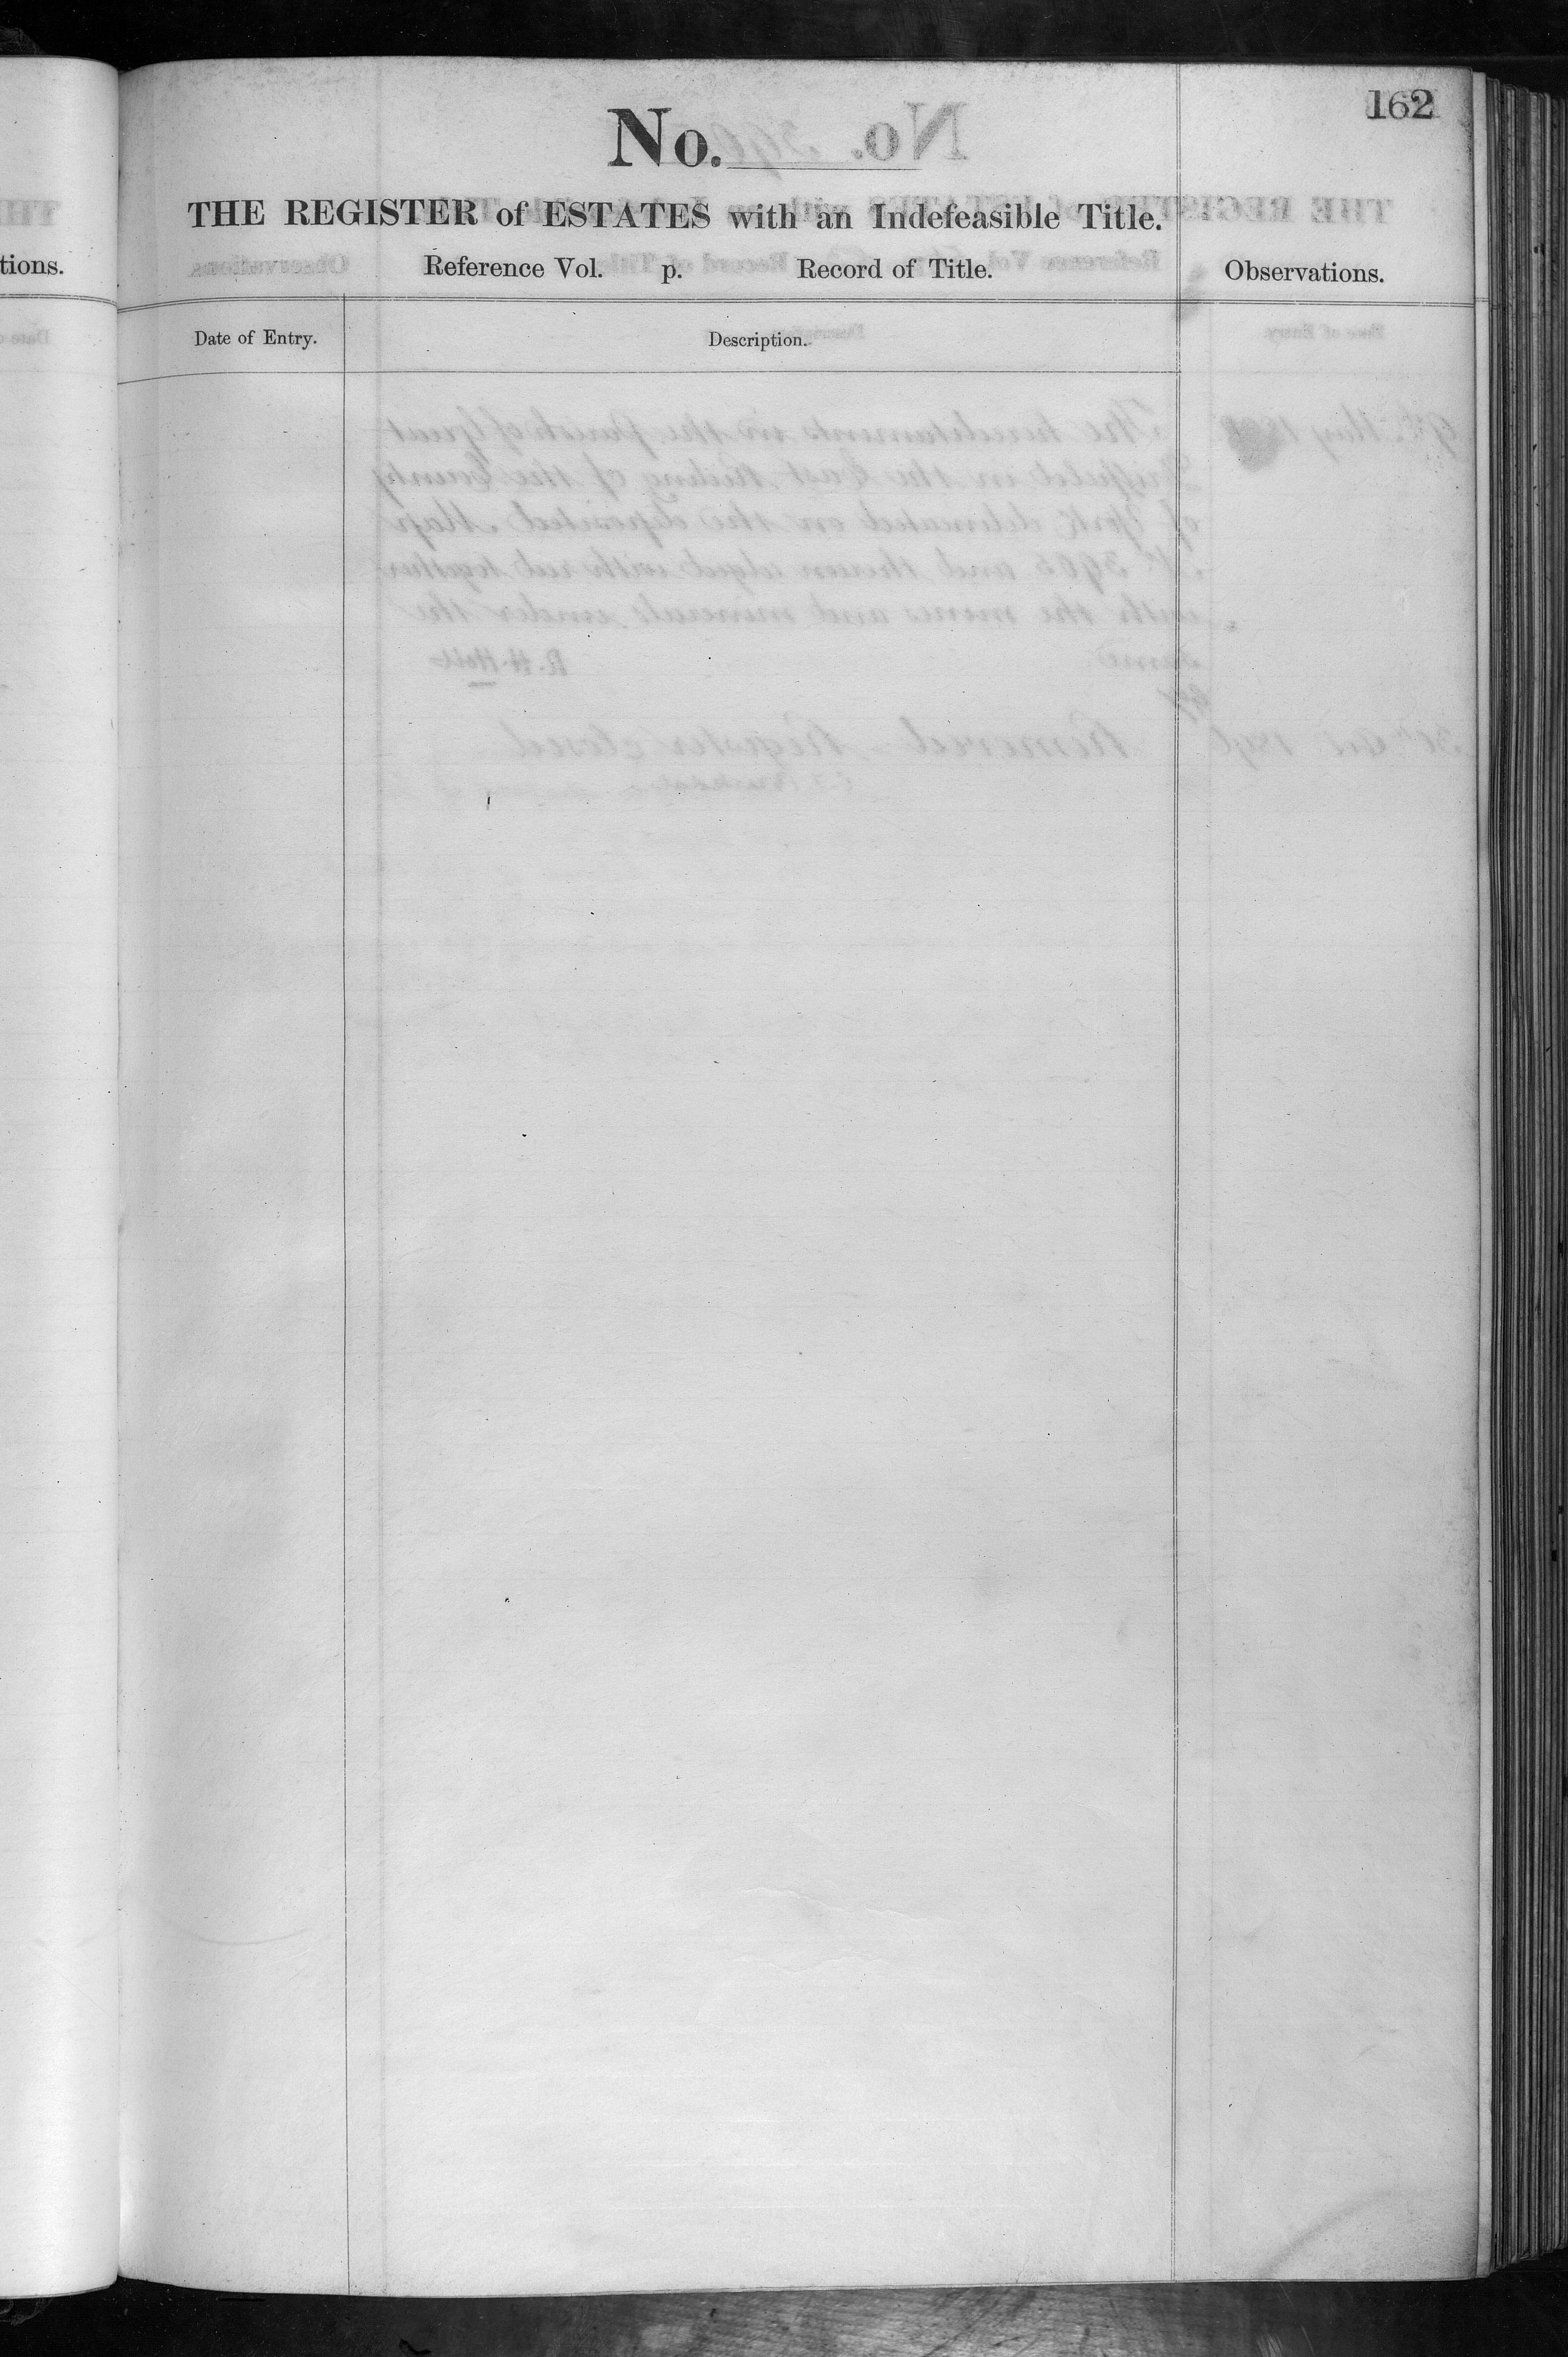 162
No.
THE REGISTER of ESTATES with an Indefeasible Title.
tions.
Reference Vol. p. Record of Title.
Observations.
Date of Entry.
Description.